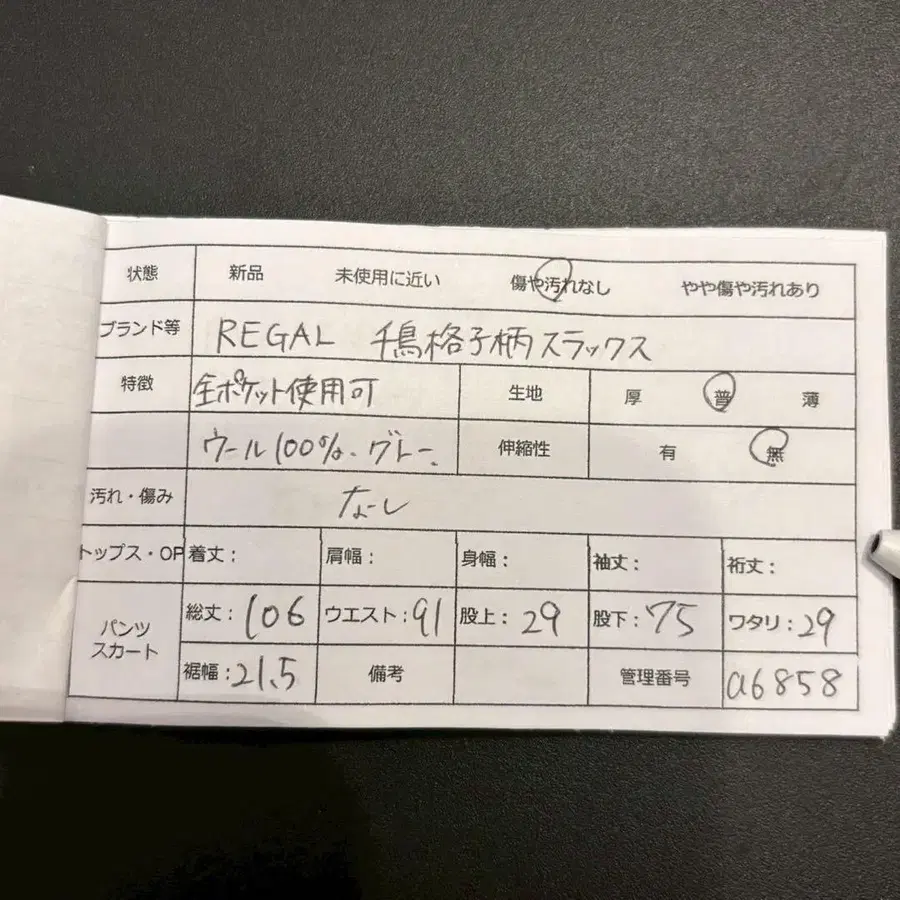 状態 新品 未使用に近い 傷や汚れなし やや傷や汚れあり
ブランド等 REGAL 千鳥格子柄スラックス
特徴 全ポケット使用可 生地 厚 普 薄
ウール100%. グレー. 伸縮性 有 無
汚れ・傷み なし
トップス・OP 着丈: 肩幅: 身幅: 袖丈: 裄丈:
パンツ スカート 総丈:106 ウエスト:91 股上:29 股下:75 ワタリ:29
裾幅:21.5 備考 管理番号 a6858